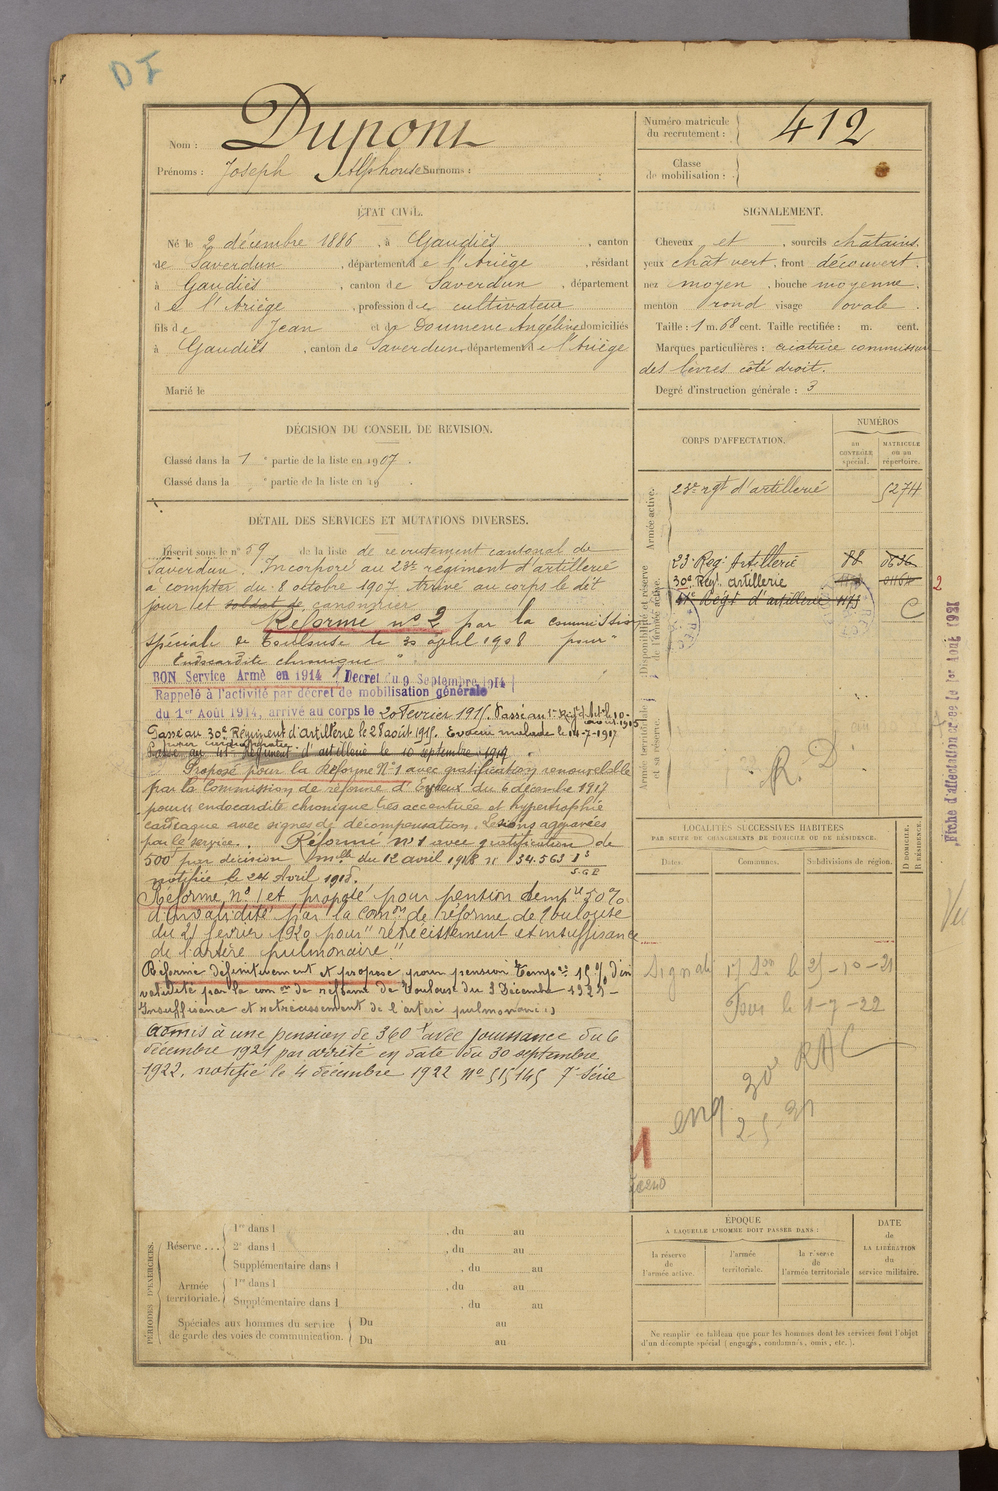 DI
Nom : Dupont
Prénoms : Joseph Alphonse Surnoms :
Numéro matricule du recrutement : 412
Classe de mobilisation :
ÉTAT CIVIL.
Né le 2 décembre 1886, à Gaudiès, canton
de Saverdun, département de l'Ariège, résidant
à Gaudiès, canton de Saverdun, département
de l'Ariège, profession de cultivateur
fils de Jean et de Doumenc Angéline domiciliés
à Gaudiès, canton de Saverdun, département de l'Ariège
Marié le
SIGNALEMENT.
Cheveux et, sourcils châtains.
yeux chât vert, front découvert.
nez moyen, bouche moyenne.
menton rond visage ovale.
Taille : 1 m. 68 cent. Taille rectifiée : m. cent.
Marques particulières : cicatrice commissure
des lèvres côté droit.
Degré d'instruction générale : 3
DÉCISION DU CONSEIL DE REVISION.
Classé dans la 1e partie de la liste en 1907.
Classé dans la e partie de la liste en 19 .
CORPS D'AFFECTATION.
NUMÉROS
AU CONTRÔLE spécial.
MATRICULE ou au répertoire.
Armée active.
23e rgt d'artillerie 5274
Disponibilité et réserve de l'armée active.
23 Reg. Artillerie 88
30e Régt. artillerie
Régt d'artillerie 1175
C
2
Armée territoriale et sa réserve.
R. D
DÉTAIL DES SERVICES ET MUTATIONS DIVERSES.
Inscrit sous le n° 59 de la liste de recrutement cantonal de
Saverdun. Incorporé au 23e régiment d'artillerie
à compter du 8 octobre 1907. Arrivé au corps le dit
jour et soldat de canonnier
Réformé n° 2 par la commission
spéciale de Toulouse le 30 april 1908 pour "
Endocardite chronique "
BON Service Armé en 1914 / Décret du 9 Septembre 1914
Rappelé à l'activité par décret de mobilisation générale
du 1er Août 1914, arrivé au corps le 20 Février 1915. Passé au
Passé au 30e Régiment d'artillerie le 28 août 1915. Evacué malade le 14-7-1917
Passé au Régiment d'artillerie le 10 septembre 1917
Proposé pour la Réforme N° 1 avec gratification renouvelable
par la Commission de réforme d'Evreux du 6 décembre 1917
pour endocardite chronique très accentuée et hypertrophie
cardiaque avec signes de décompensation. Lésions aggravées
par le service. Réformé n° 1 avec gratification de
500f par décision mlle du 12 avril 1918 n° 34.563
notifiée le 24 Avril 1918.
Réformé n° 1 et proposé pour pension temp.re 50%
d'invalidité par la Comon de réforme de Toulouse
du 21 février 1920 pour "rétrécissement et insuffisance
de l'artère pulmonaire."
Réformé définitivement et proposé pour pension temp.re 15% d'in
validité par la com.on de réforme de Toulouse du 3 Décembre 1921 -
Insuffisance et rétrécissement de l'artère pulmonaire
Admis à une pension de 360f avec jouissance du 6
décembre 1921 par arrêté en date du 30 septembre
1922, notifié le 4 décembre 1922 N° 515145 7e Série
LOCALITÉS SUCCESSIVES HABITÉES
PAR SUITE DE CHANGEMENTS DE DOMICILE OU DE RÉSIDENCE.
Dates.
Communes.
Subdivisions de région.
D DOMICILE.
R RÉSIDENCE.
le 25-10-21
le 1-7-22
30e RAC
1
Fiche d'affectation créée le 1er Août 1931
Vu
PÉRIODES D'EXERCICES.
Réserve... 1re dans l , du au
2e dans l , du au
Supplémentaire dans l , du au
Armée territoriale. 1re dans l , du au
Supplémentaire dans l , du au
Spéciales aux hommes du service de garde des voies de communication. Du au
Du au
ÉPOQUE
À LAQUELLE L'HOMME DOIT PASSER DANS :
la réserve de l'armée active.
l'armée territoriale.
la réserve de l'armée territoriale
DATE de LA LIBÉRATION du service militaire.
Ne remplir ce tableau que pour les hommes dont les services font l'objet
d'un décompte spécial (engagés, condamnés, omis, etc.).